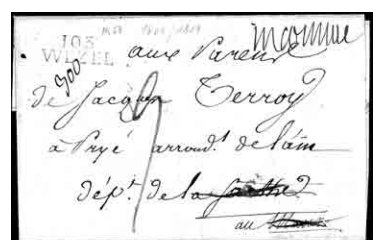 1808/1809
103
WEZEL
inconnu
300
aux Parens
de Jacques Terroy
à Pryé arrond.t de l'ain
dép.t de la Sarthe
au Mans